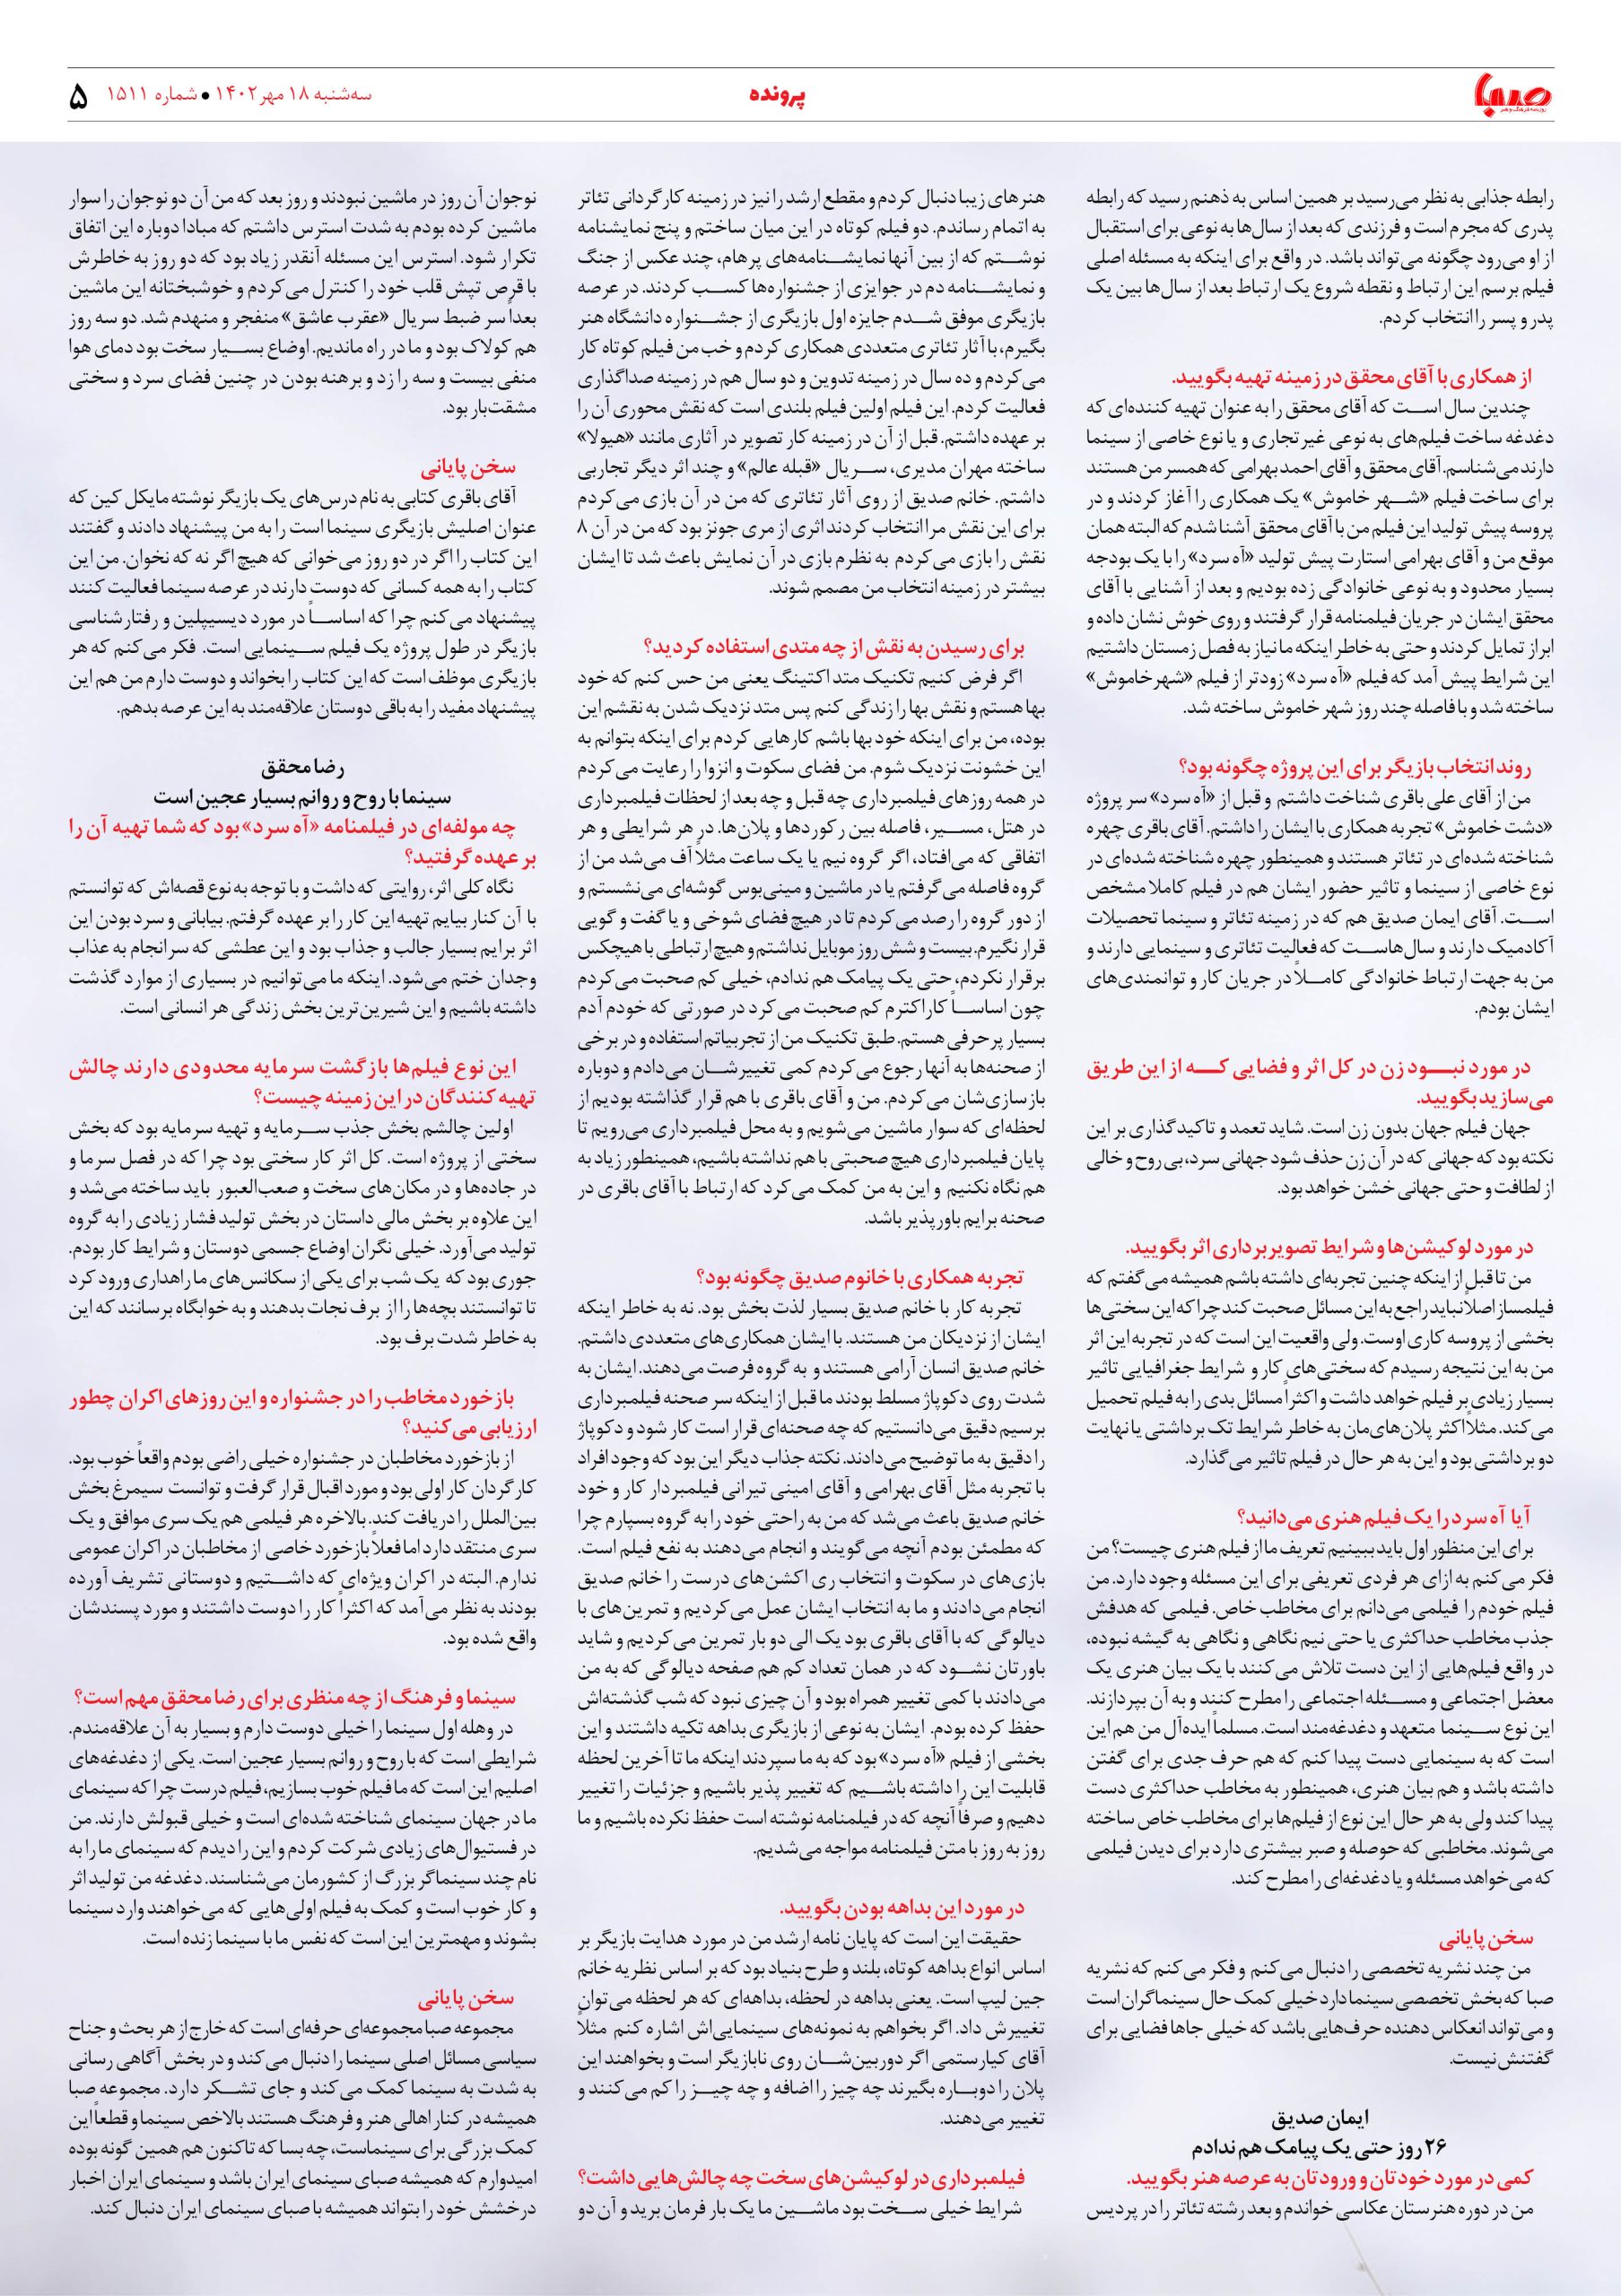 صبا
روزنامه فرهنگ و هنر
پرونده
سه‌شنبه ۱۸ مهر ۱۴۰۲ ● شماره ۱۵۱۱
۵
رابطه جذابی به نظر می‌رسید بر همین اساس به ذهنم رسید که رابطه
پدری که مجرم است و فرزندی که بعد از سال‌ها به نوعی برای استقبال
از او می‌رود چگونه می‌تواند باشد. در واقع برای اینکه به مسئله اصلی
فیلم برسم این ارتباط و نقطه شروع یک ارتباط بعد از سال‌ها بین یک
پدر و پسر را انتخاب کردم.
از همکاری با آقای محقق در زمینه تهیه بگویید.
چندین سال است که آقای محقق را به عنوان تهیه کننده‌ای که
دغدغه ساخت فیلم‌های به نوعی غیرتجاری و یا نوع خاصی از سینما
دارند می‌شناسم. آقای محقق و آقای احمد بهرامی که همسر من هستند
برای ساخت فیلم «شهر خاموش» یک همکاری را آغاز کردند و در
پروسه پیش تولید این فیلم من با آقای محقق آشنا شدم که البته همان
موقع من و آقای بهرامی استارت پیش تولید «آه سرد» را با یک بودجه
بسیار محدود و به نوعی خانوادگی زده بودیم و بعد از آشنایی با آقای
محقق ایشان در جریان فیلمنامه قرار گرفتند و روی خوش نشان داده و
ابراز تمایل کردند و حتی به خاطر اینکه ما نیاز به فصل زمستان داشتیم
این شرایط پیش آمد که فیلم «آه سرد» زودتر از فیلم «شهر خاموش»
ساخته شد و با فاصله چند روز شهر خاموش ساخته شد.
روند انتخاب بازیگر برای این پروژه چگونه بود؟
من از آقای علی باقری شناخت داشتم و قبل از «آه سرد» سر پروژه
«دشت خاموش» تجربه همکاری با ایشان را داشتم. آقای باقری چهره
شناخته شده‌ای در تئاتر هستند و همینطور چهره شناخته شده‌ای در
نوع خاصی از سینما و تاثیر حضور ایشان هم در فیلم کاملا مشخص
است. آقای ایمان صدیق هم که در زمینه تئاتر و سینما تحصیلات
آکادمیک دارند و سال‌هاست که فعالیت تئاتری و سینمایی دارند و
من به جهت ارتباط خانوادگی کاملاً در جریان کار و توانمندی‌های
ایشان بودم.
در مورد نبود زن در کل اثر و فضایی که از این طریق
می‌سازید بگویید.
جهان فیلم جهان بدون زن است. شاید تعمد و تاکیدگذاری بر این
نکته بود که جهانی که در آن زن حذف شود جهانی سرد، بی روح و خالی
از لطافت و حتی جهانی خشن خواهد بود.
در مورد لوکیشن‌ها و شرایط تصویربرداری اثر بگویید.
من تا قبل از اینکه چنین تجربه‌ای داشته باشم همیشه می‌گفتم که
فیلمساز اصلاً نباید راجع به این مسائل صحبت کند چرا که این سختی‌ها
بخشی از پروسه کاری اوست. ولی واقعیت این است که در تجربه این اثر
من به این نتیجه رسیدم که سختی‌های کار و شرایط جغرافیایی تاثیر
بسیار زیادی بر فیلم خواهد داشت و اکثراً مسائل بدی را به فیلم تحمیل
می‌کند. مثلاً اکثر پلان‌های‌مان به خاطر شرایط تک برداشتی یا نهایت
دو برداشتی بود و این به هر حال در فیلم تاثیر می‌گذارد.
آیا آه سرد را یک فیلم هنری می‌دانید؟
برای این منظور اول باید ببینیم تعریف ما از فیلم هنری چیست؟ من
فکر می‌کنم به ازای هر فردی تعریفی برای این مسئله وجود دارد. من
فیلم خودم را فیلمی می‌دانم برای مخاطب خاص. فیلمی که هدفش
جذب مخاطب حداکثری یا حتی نیم نگاهی و نگاهی به گیشه نبوده،
در واقع فیلم‌هایی از این دست تلاش می‌کنند با یک بیان هنری یک
معضل اجتماعی و مسئله اجتماعی را مطرح کنند و به آن بپردازند.
این نوع سینما متعهد و دغدغه‌مند است. مسلماً ایده‌آل من هم این
است که به سینمایی دست پیدا کنم که هم حرف جدی برای گفتن
داشته باشد و هم بیان هنری، همینطور به مخاطب حداکثری دست
پیدا کند ولی به هر حال این نوع از فیلم‌ها برای مخاطب خاص ساخته
می‌شوند. مخاطبی که حوصله و صبر بیشتری دارد برای دیدن فیلمی
که می‌خواهد مسئله و یا دغدغه‌ای را مطرح کند.
سخن پایانی
من چند نشریه تخصصی را دنبال می‌کنم و فکر می‌کنم که نشریه
صبا که بخش تخصصی سینما دارد خیلی کمک حال سینماگران است
و می‌تواند انعکاس دهنده حرف‌هایی باشد که خیلی جاها فضایی برای
گفتنش نیست.
ایمان صدیق
۲۶ روز حتی یک پیامک هم ندادم
کمی در مورد خودتان و ورودتان به عرصه هنر بگویید.
من در دوره هنرستان عکاسی خواندم و بعد رشته تئاتر را در پردیس
هنرهای زیبا دنبال کردم و مقطع ارشد را نیز در زمینه کارگردانی تئاتر
به اتمام رساندم. دو فیلم کوتاه در این میان ساختم و پنج نمایشنامه
نوشتم که از بین آنها نمایشنامه‌های پرهام، چند عکس از جنگ
و نمایشنامه دم در جوایزی از جشنواره‌ها کسب کردند. در عرصه
بازیگری موفق شدم جایزه اول بازیگری از جشنواره دانشگاه هنر
بگیرم، با آثار تئاتری متعددی همکاری کردم و خب من فیلم کوتاه کار
می‌کردم و ده سال در زمینه تدوین و دو سال هم در زمینه صداگذاری
فعالیت کردم. این فیلم اولین فیلم بلندی است که نقش محوری آن را
بر عهده داشتم. قبل از آن در زمینه کار تصویر در آثاری مانند «هیولا»
ساخته مهران مدیری، سریال «قبله عالم» و چند اثر دیگر تجاربی
داشتم. خانم صدیق از روی آثار تئاتری که من در آن بازی می‌کردم
برای این نقش مرا انتخاب کردند اثری از مری جونز بود که من در آن ۸
نقش را بازی می‌کردم به نظرم بازی در آن نمایش باعث شد تا ایشان
بیشتر در زمینه انتخاب من مصمم شوند.
برای رسیدن به نقش از چه متدی استفاده کردید؟
اگر فرض کنیم تکنیک متد اکتینگ یعنی من حس کنم که خود
بها هستم و نقش بها را زندگی کنم پس متد نزدیک شدن به نقشم این
بوده، من برای اینکه خود بها باشم کارهایی کردم برای اینکه بتوانم به
این خشونت نزدیک شوم. من فضای سکوت و انزوا را رعایت می‌کردم
در همه روزهای فیلمبرداری چه قبل و چه بعد از لحظات فیلمبرداری
در هتل، مسیر، فاصله بین رکوردها و پلان‌ها. در هر شرایطی و هر
اتفاقی که می‌افتاد، اگر گروه نیم یا یک ساعت مثلاً آف می‌شد من از
گروه فاصله می‌گرفتم یا در ماشین و مینی‌بوس گوشه‌ای می‌نشستم و
از دور گروه را رصد می‌کردم تا در هیچ فضای شوخی و یا گفت و گویی
قرار نگیرم. بیست و شش روز موبایل نداشتم و هیچ ارتباطی با هیچکس
برقرار نکردم، حتی یک پیامک هم ندادم، خیلی کم صحبت می‌کردم
چون اساساً کاراکترم کم صحبت می‌کرد در صورتی که خودم آدم
بسیار پرحرفی هستم. طبق تکنیک من از تجربیاتم استفاده و در برخی
از صحنه‌ها به آنها رجوع می‌کردم کمی تغییرشان می‌دادم و دوباره
بازسازی‌شان می‌کردم. من و آقای باقری با هم قرار گذاشته بودیم از
لحظه‌ای که سوار ماشین می‌شویم و به محل فیلمبرداری می‌رویم تا
پایان فیلمبرداری هیچ صحبتی با هم نداشته باشیم، همینطور زیاد به
هم نگاه نکنیم و این به من کمک می‌کرد که ارتباط با آقای باقری در
صحنه برایم باورپذیر باشد.
تجربه همکاری با خانوم صدیق چگونه بود؟
تجربه کار با خانم صدیق بسیار لذت بخش بود. نه به خاطر اینکه
ایشان از نزدیکان من هستند. با ایشان همکاری‌های متعددی داشتم.
خانم صدیق انسان آرامی هستند و به گروه فرصت می‌دهند. ایشان به
شدت روی دکوپاژ مسلط بودند ما قبل از اینکه سر صحنه فیلمبرداری
برسیم دقیق می‌دانستیم که چه صحنه‌ای قرار است کار شود و دکوپاژ
را دقیق به ما توضیح می‌دادند. نکته جذاب دیگر این بود که وجود افراد
با تجربه مثل آقای بهرامی و آقای امینی تیرانی فیلمبردار کار و خود
خانم صدیق باعث می‌شد که من به راحتی خود را به گروه بسپارم چرا
که مطمئن بودم آنچه می‌گویند و انجام می‌دهند به نفع فیلم است.
بازی‌های در سکوت و انتخاب ری اکشن‌های درست را خانم صدیق
انجام می‌دادند و ما به انتخاب ایشان عمل می‌کردیم و تمرین‌های با
دیالوگی که با آقای باقری بود یک الی دو بار تمرین می‌کردیم و شاید
باورتان نشود که در همان تعداد کم هم صفحه دیالوگی که به من
می‌دادند با کمی تغییر همراه بود و آن چیزی نبود که شب گذشته‌اش
حفظ کرده بودم. ایشان به نوعی از بازیگری بداهه تکیه داشتند و این
بخشی از فیلم «آه سرد» بود که به ما سپردند اینکه ما تا آخرین لحظه
قابلیت این را داشته باشیم که تغییر پذیر باشیم و جزئیات را تغییر
دهیم و صرفاً آنچه که در فیلمنامه نوشته است حفظ نکرده باشیم و ما
روز به روز با متن فیلمنامه مواجه می‌شدیم.
در مورد این بداهه بودن بگویید.
حقیقت این است که پایان نامه ارشد من در مورد هدایت بازیگر بر
اساس انواع بداهه کوتاه، بلند و طرح بنیاد بود که بر اساس نظریه خانم
جین لیپ است. یعنی بداهه در لحظه، بداهه‌ای که هر لحظه می‌توان
تغییرش داد. اگر بخواهم به نمونه‌های سینمایی‌اش اشاره کنم مثلاً
آقای کیارستمی اگر دوربین‌شان روی نابازیگر است و بخواهند این
پلان را دوباره بگیرند چه چیز را اضافه و چه چیز را کم می‌کنند و
تغییر می‌دهند.
فیلمبرداری در لوکیشن‌های سخت چه چالش‌هایی داشت؟
شرایط خیلی سخت بود ماشین ما یک بار فرمان برید و آن دو
نوجوان آن روز در ماشین نبودند و روز بعد که من آن دو نوجوان را سوار
ماشین کرده بودم به شدت استرس داشتم که مبادا دوباره این اتفاق
تکرار شود. استرس این مسئله آنقدر زیاد بود که دو روز به خاطرش
با قرص تپش قلب خود را کنترل می‌کردم و خوشبختانه این ماشین
بعداً سر ضبط سریال «عقرب عاشق» منفجر و منهدم شد. دو سه روز
هم کولاک بود و ما در راه ماندیم. اوضاع بسیار سخت بود دمای هوا
منفی بیست و سه را زد و برهنه بودن در چنین فضای سرد و سختی
مشقت‌بار بود.
سخن پایانی
آقای باقری کتابی به نام درس‌های یک بازیگر نوشته مایکل کین که
عنوان اصلیش بازیگری سینما است را به من پیشنهاد دادند و گفتند
این کتاب را اگر در دو روز می‌خوانی که هیچ اگر نه که نخوان. من این
کتاب را به همه کسانی که دوست دارند در عرصه سینما فعالیت کنند
پیشنهاد می‌کنم چرا که اساساً در مورد دیسیپلین و رفتارشناسی
بازیگر در طول پروژه یک فیلم سینمایی است. فکر می‌کنم که هر
بازیگری موظف است که این کتاب را بخواند و دوست دارم من هم این
پیشنهاد مفید را به باقی دوستان علاقه‌مند به این عرصه بدهم.
رضا محقق
سینما با روح و روانم بسیار عجین است
چه مولفه‌ای در فیلمنامه «آه سرد» بود که شما تهیه آن را
بر عهده گرفتید؟
نگاه کلی اثر، روایتی که داشت و با توجه به نوع قصه‌اش که توانستم
با آن کنار بیایم تهیه این کار را بر عهده گرفتم. بیابانی و سرد بودن این
اثر برایم بسیار جالب و جذاب بود و این عطشی که سرانجام به عذاب
وجدان ختم می‌شود. اینکه ما می‌توانیم در بسیاری از موارد گذشت
داشته باشیم و این شیرین‌ترین بخش زندگی هر انسانی است.
این نوع فیلم‌ها بازگشت سرمایه محدودی دارند چالش
تهیه کنندگان در این زمینه چیست؟
اولین چالشم بخش جذب سرمایه و تهیه سرمایه بود که بخش
سختی از پروژه است. کل اثر کار سختی بود چرا که در فصل سرما و
در جاده‌ها و در مکان‌های سخت و صعب‌العبور باید ساخته می‌شد و
این علاوه بر بخش مالی داستان در بخش تولید فشار زیادی را به گروه
تولید می‌آورد. خیلی نگران اوضاع جسمی دوستان و شرایط کار بودم.
جوری بود که یک شب برای یکی از سکانس‌های ما راهداری ورود کرد
تا توانستند بچه‌ها را از برف نجات بدهند و به خوابگاه برسانند که این
به خاطر شدت برف بود.
بازخورد مخاطب را در جشنواره و این روزهای اکران چطور
ارزیابی می‌کنید؟
از بازخورد مخاطبان در جشنواره خیلی راضی بودم واقعاً خوب بود.
کارگردان کار اولی بود و مورد اقبال قرار گرفت و توانست سیمرغ بخش
بین‌الملل را دریافت کند. بالاخره هر فیلمی هم یک سری موافق و یک
سری منتقد دارد اما فعلاً بازخورد خاصی از مخاطبان در اکران عمومی
ندارم. البته در اکران ویژه‌ای که داشتیم و دوستانی تشریف آورده
بودند به نظر می‌آمد که اکثراً کار را دوست داشتند و مورد پسندشان
واقع شده بود.
سینما و فرهنگ از چه منظری برای رضا محقق مهم است؟
در وهله اول سینما را خیلی دوست دارم و بسیار به آن علاقه‌مندم.
شرایطی است که با روح و روانم بسیار عجین است. یکی از دغدغه‌های
اصلیم این است که ما فیلم خوب بسازیم، فیلم درست چرا که سینمای
ما در جهان سینمای شناخته شده‌ای است و خیلی قبولش دارند. من
در فستیوال‌های زیادی شرکت کردم و این را دیدم که سینمای ما را به
نام چند سینماگر بزرگ از کشورمان می‌شناسند. دغدغه من تولید اثر
و کار خوب است و کمک به فیلم اولی‌هایی که می‌خواهند وارد سینما
بشوند و مهمترین این است که نفس ما با سینما زنده است.
سخن پایانی
مجموعه صبا مجموعه‌ای حرفه‌ای است که خارج از هر بحث و جناح
سیاسی مسائل اصلی سینما را دنبال می‌کند و در بخش آگاهی رسانی
به شدت به سینما کمک می‌کند و جای تشکر دارد. مجموعه صبا
همیشه در کنار اهالی هنر و فرهنگ هستند بالاخص سینما و قطعاً این
کمک بزرگی برای سینماست، چه بسا که تاکنون هم همین گونه بوده
امیدوارم که همیشه صبای سینمای ایران باشد و سینمای ایران اخبار
درخشش خود را بتواند همیشه با صبای سینمای ایران دنبال کند.